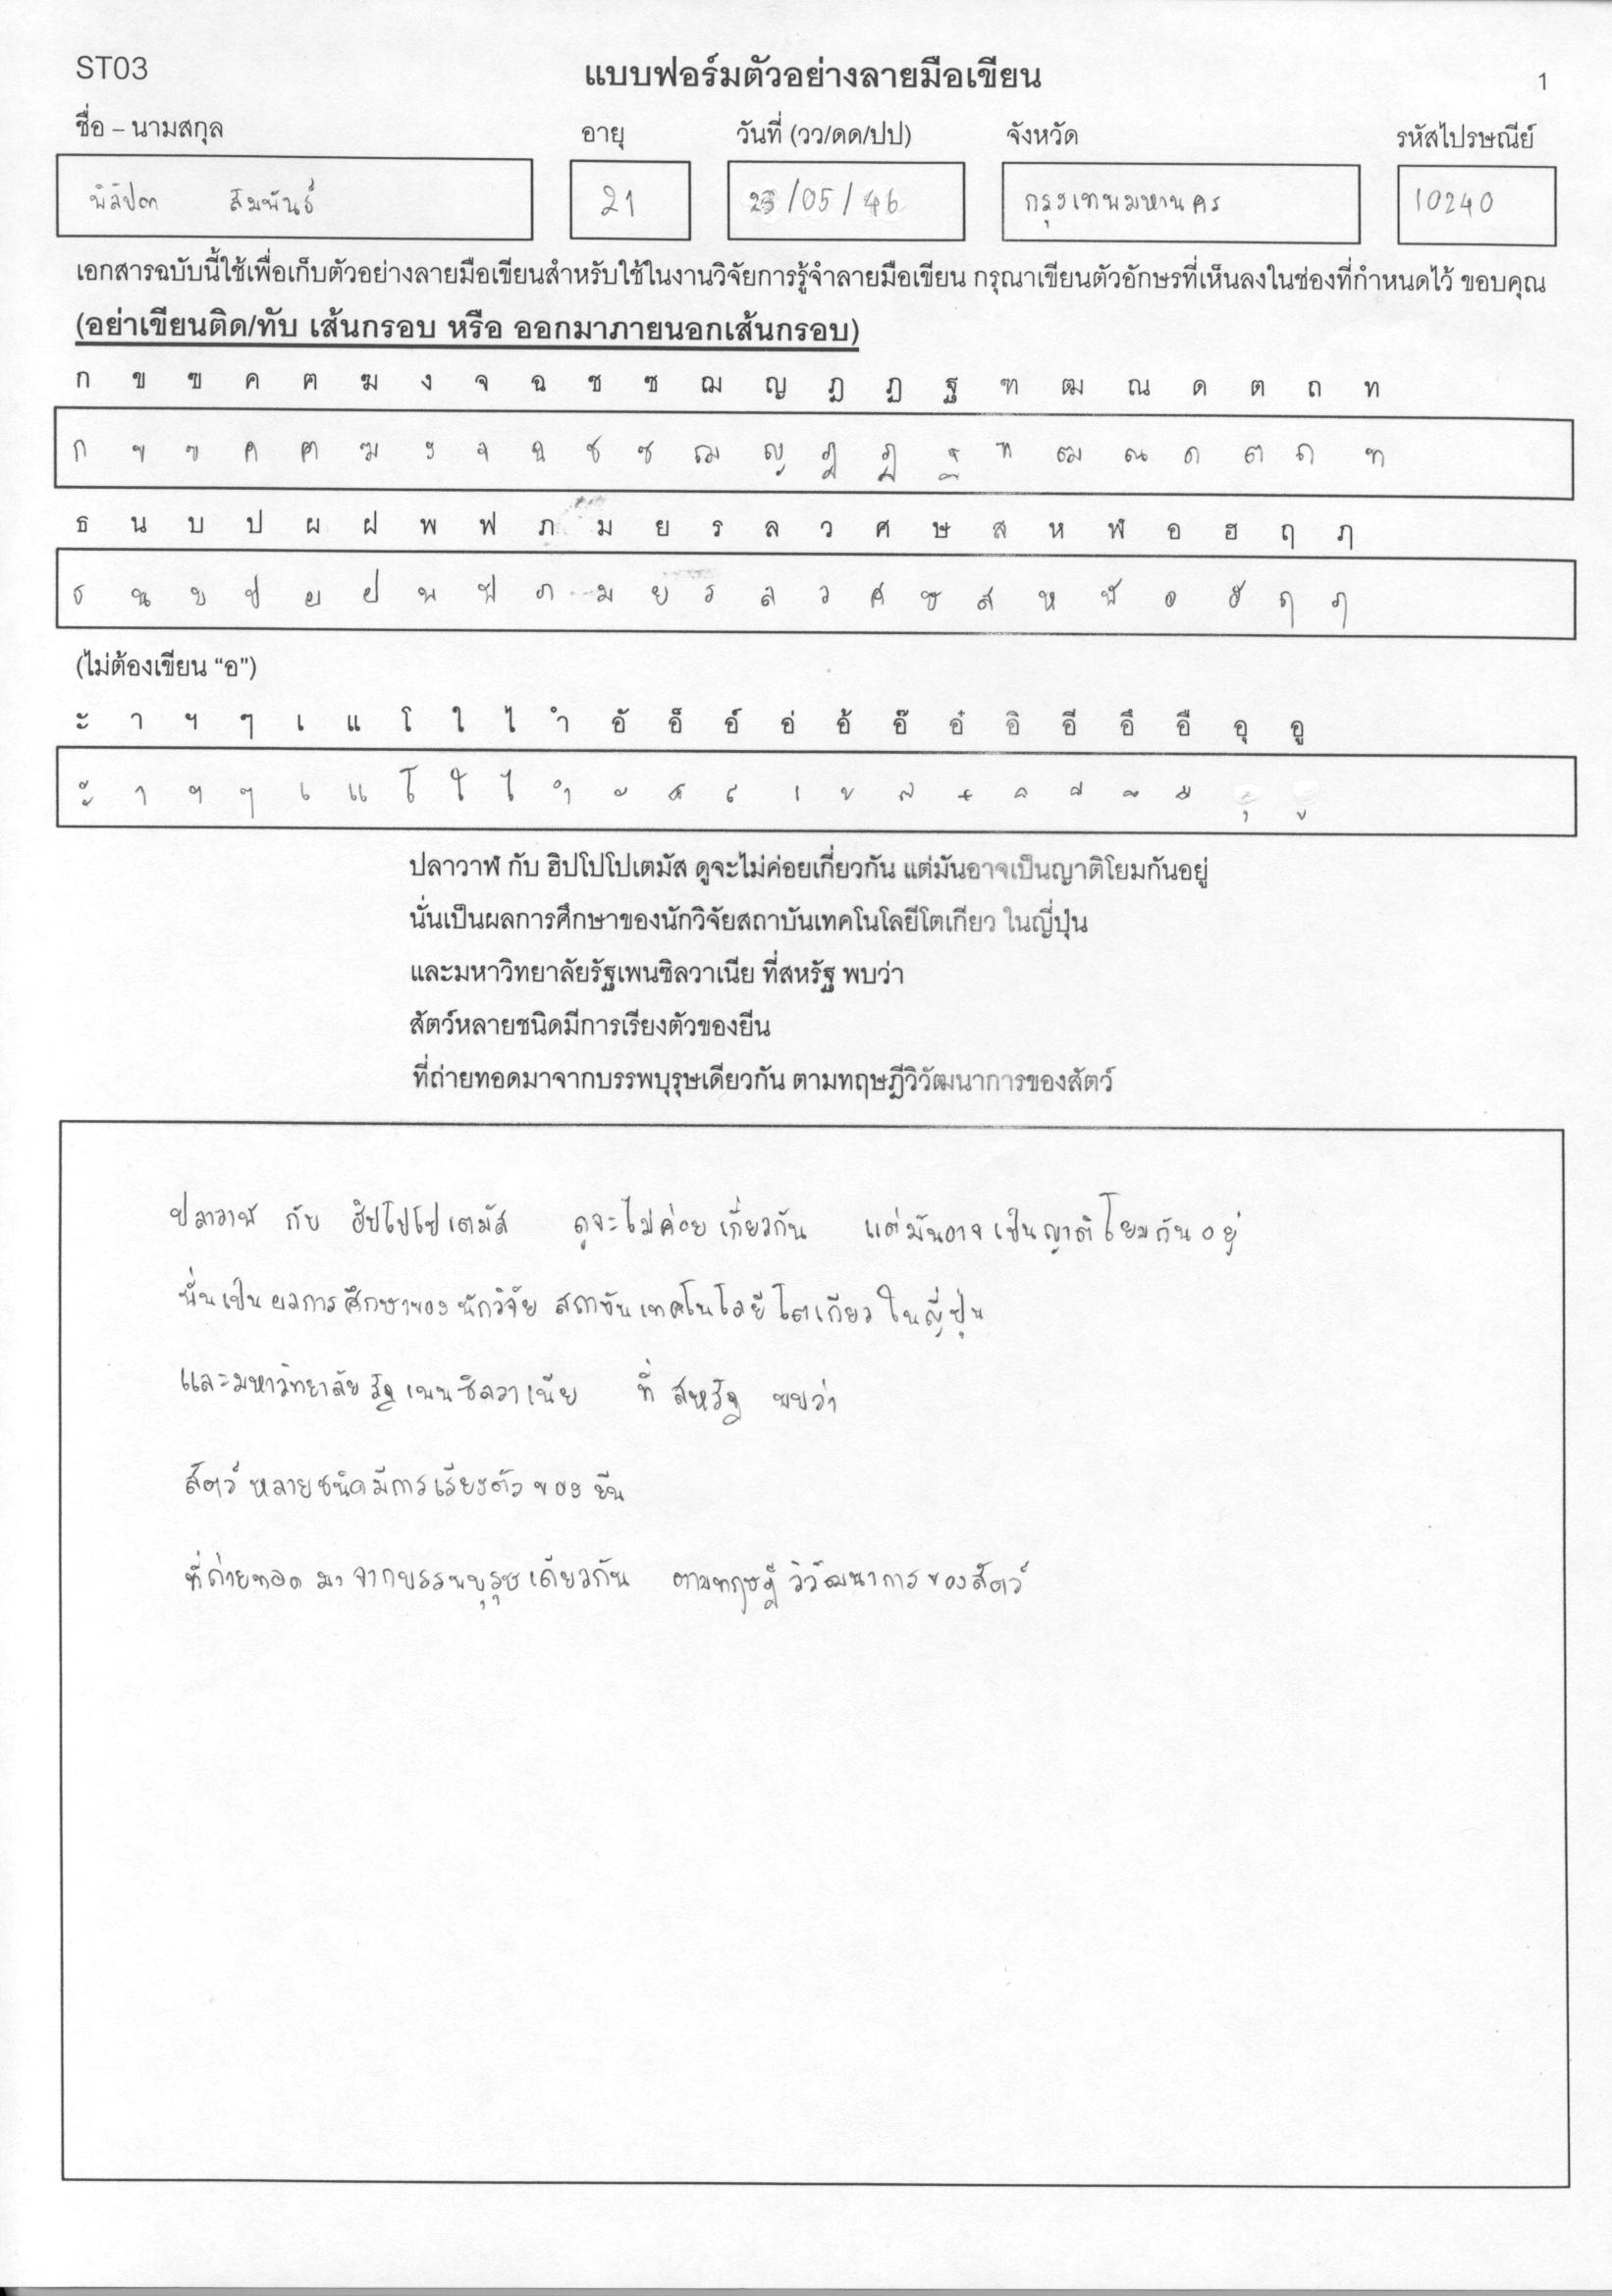 ST03
แบบฟอร์มตัวอย่างลายมือเขียน
1
ชื่อ – นามสกุล อายุ วันที่ (วว/ดด/ปป) จังหวัด รหัสไปรษณีย์
สัมพันธ์ 21 23/05/46 กรุงเทพมหานคร 10240
เอกสารฉบับนี้ใช้เพื่อเก็บตัวอย่างลายมือเขียนสำหรับใช้ในงานวิจัยการรู้จำลายมือเขียน กรุณาเขียนตัวอักษรที่เห็นลงในช่องที่กำหนดไว้ ขอบคุณ
(อย่าเขียนติด/ทับ เส้นกรอบ หรือ ออกมาภายนอกเส้นกรอบ)
ก ข ฃ ค ฅ ฆ ง จ ฉ ช ซ ฌ ญ ฎ ฏ ฐ ฑ ฒ ณ ด ต ถ ท
ก ข ฃ ค ฅ ฆ ง จ ฉ ช ซ ฌ ญ ฎ ฏ ฐ ฑ ฒ ณ ด ต ถ ท
ธ น บ ป ผ ฝ พ ฟ ภ ม ย ร ล ว ศ ษ ส ห ฬ อ ฮ ฤ ฦ
ธ น บ ป ผ ฝ พ ฟ ภ ม ย ร ล ว ศ ษ ส ห ฬ อ ฮ ฤ ฦ
(ไม่ต้องเขียน “อ”)
ะ า ฯ ๆ เ แ โ ใ ไ ำ อั อ็ อ์ อ่ อ้ อ๊ อ๋ อิ อี อึ อื อุ อู
ะ า ฯ ๆ เ แ โ ใ ไ ำ ั ็ ์ ่ ้ ๊ ๋ ิ ี ึ ื ุ ู
ปลาวาฬ กับ ฮิปโปโปเตมัส ดูจะไม่ค่อยเกี่ยวกัน แต่มันอาจเป็นญาติโยมกันอยู่
นั่นเป็นผลการศึกษาของนักวิจัยสถาบันเทคโนโลยีโตเกียว ในญี่ปุ่น
และมหาวิทยาลัยรัฐเพนซิลวาเนีย ที่สหรัฐ พบว่า
สัตว์หลายชนิดมีการเรียงตัวของยีน
ที่ถ่ายทอดมาจากบรรพบุรุษเดียวกัน ตามทฤษฎีวิวัฒนาการของสัตว์
ปลาวาฬ กับ ฮิปโปโปเตมัส ดูจะไม่ค่อยเกี่ยวกัน แต่มันอาจเป็นญาติโยมกันอยู่
นั่นเป็นผลการศึกษาของนักวิจัย สถาบันเทคโนโลยีโตเกียว ในญี่ปุ่น
และมหาวิทยาลัยรัฐเพนซิลวาเนีย ที่ สหรัฐ พบว่า
สัตว์หลายชนิดมีการเรียงตัวของยีน
ที่ถ่ายทอดมาจากบรรพบุรุษเดียวกัน ตามทฤษฎีวิวัฒนาการของสัตว์